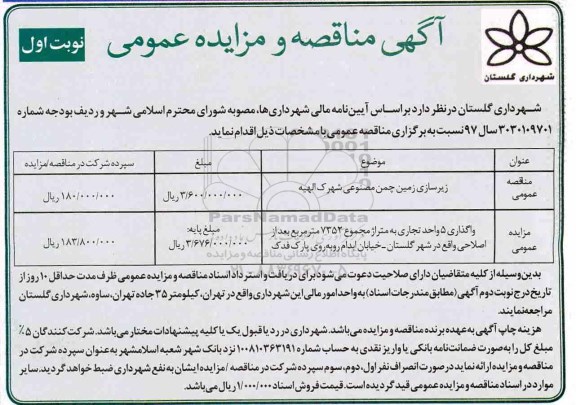 آگهی مناقصه و مزایده عمومی
نوبت اول
شهرداری گلستان
شهرداری گلستان در نظر دارد بر اساس آیین‌نامه مالی شهرداری‌ها، مصوبه شورای محترم اسلامی شهر و ردیف بودجه شماره
۳۰۳۰۱۰۹۷۰۱ سال ۹۷ نسبت به برگزاری مناقصه عمومی با مشخصات ذیل اقدام نماید.
عنوان موضوع مبلغ سپرده شرکت در مناقصه/مزایده
مناقصه عمومی زیرسازی زمین چمن مصنوعی شهرک الهیه ۳/۶۰۰/۰۰۰/۰۰۰ ریال ۱۸۰/۰۰۰/۰۰۰ ریال
مزایده عمومی واگذاری ۵ واحد تجاری به متراژ مجموع ۷۳۵۲ مترمربع بعد از
اصلاحی واقع در شهر گلستان-خیابان ایدام روبه‌روی پارک فدک مبلغ پایه: ۳/۶۷۶/۰۰۰/۰۰۰ ریال ۱۸۳/۸۰۰/۰۰۰ ریال
ParsNamadData
پایگاه اطلاع رسانی مناقصه و مزایده
بدین‌وسیله از کلیه متقاضیان دارای صلاحیت دعوت می‌شود برای دریافت و استرداد اسناد مناقصه و مزایده عمومی ظرف مدت حداقل ۱۰ روز از
تاریخ درج نوبت دوم آگهی (مطابق مندرجات اسناد) به واحد امور مالی این شهرداری واقع در تهران، کیلومتر ۳۵ جاده تهران، ساوه، شهرداری گلستان
مراجعه نمایند.
هزینه چاپ آگهی به عهده برنده مناقصه و مزایده می‌باشد. شهرداری در رد یا قبول یک یا کلیه پیشنهادات مختار می‌باشد. شرکت کنندگان ۵٪
مبلغ کل را به صورت ضمانت‌نامه بانکی یا واریز نقدی به حساب شماره ۱۰۰۸۱۰۳۶۳۱۹۱ نزد بانک شهر شعبه اسلامشهر به عنوان سپرده شرکت در
مناقصه و مزایده ارائه نماید در صورت انصراف نفر اول، دوم، سوم سپرده شرکت در مناقصه /مزایده ایشان به نفع شهرداری ضبط خواهد گردید. سایر
موارد در اسناد مناقصه و مزایده عمومی قید گردیده است. قیمت فروش اسناد ۱/۰۰۰/۰۰۰ ریال می‌باشد.